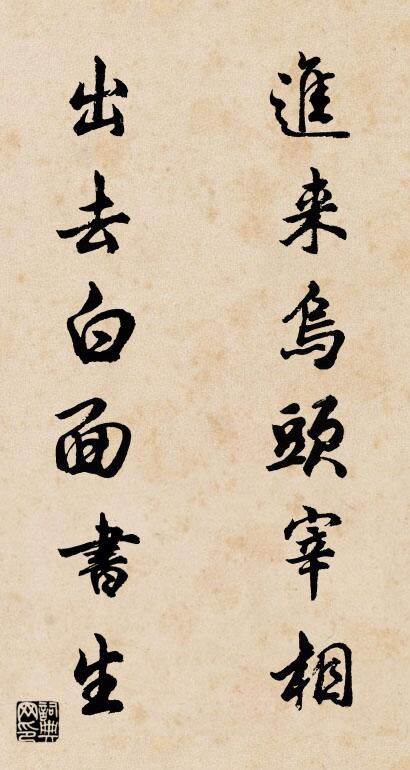 進来烏頭宰相
出去白面書生
詞典網印